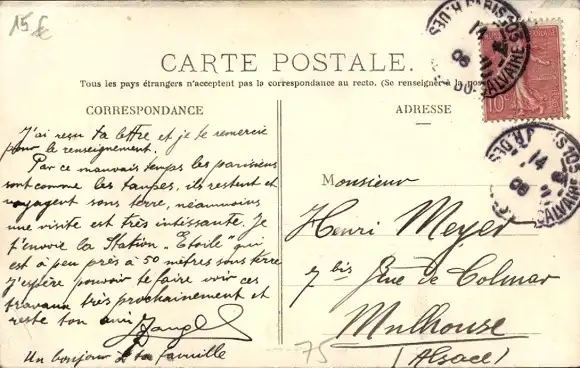 15 €
CARTE POSTALE.
Tous les pays étrangers n'acceptent pas la correspondance au recto. (Se renseigner à la poste
CORRESPONDANCE
ADRESSE
J'ai reçu ta lettre et je te remercie
pour le renseignement.
Par ce mauvais temps les parisiens
sont comme les taupes, ils restent et
voyagent sous terre, néaumoins
une visite est très intissante. Je
t'envoie la Station "Etoile" qui
est à peu près à 50 mètres sous terre
J'espère pouvoir te faire voir ces
travaux très prochainement et
reste ton ami
Un bonjour à ta famille
Monsieur
Henri Meyer
7 bis Rue de Colmar
Mulhouse
(Alsace)
75
10
PARIS
CALVAIRE
14
08
PARIS
CALVAIRE
14
08